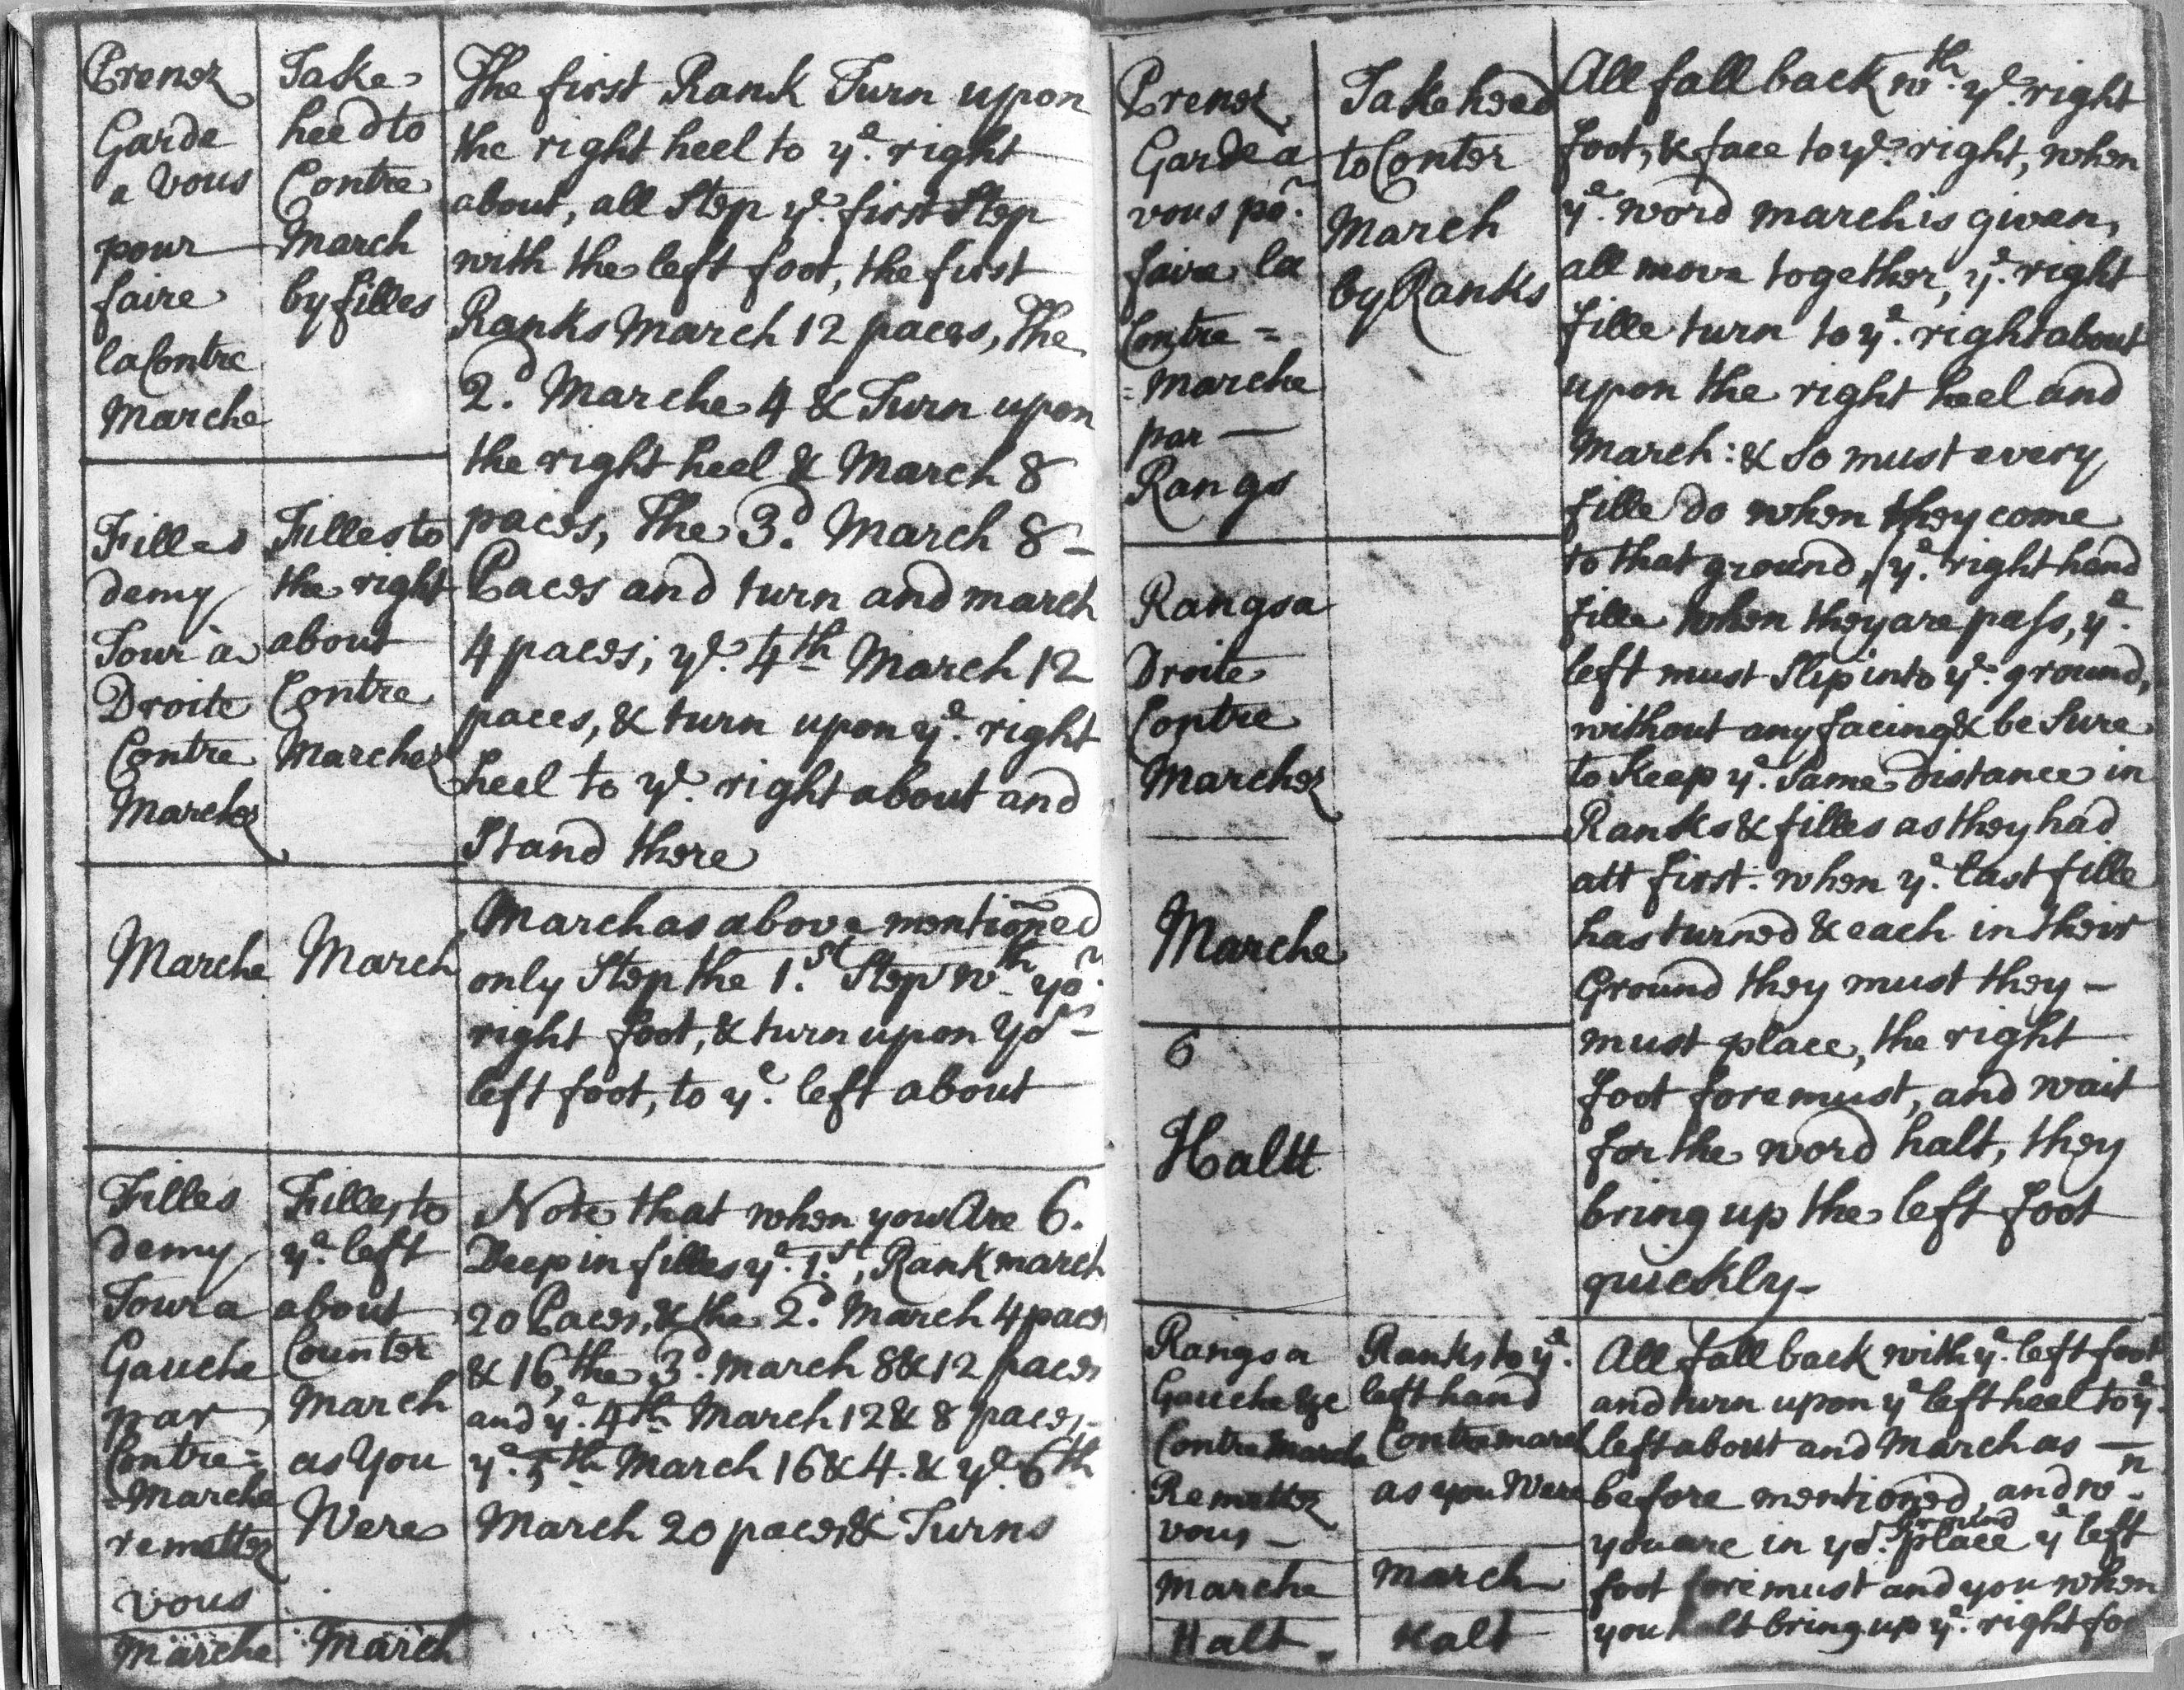 Prenez
Garde
a Vous
pour
faire
la Contre
Marche
Take
heed to
Contre
March
by filles
The first Rank Turn upon
the right heel to ye. right
about, all Step ye. first Step
with the left foot, the first
Ranks March 12 paces, The
2d. Marche 4 & Turn upon
the right heel & March 8
paces, The 3d. March 8 -
Paces and turn and march
4 paces; ye. 4th March 12
paces, & turn upon ye. right
heel to ye. right about and
Stand there
Filles
demy
Tour à
Droite
Contre
Marchez
Filles to
the right
about
Contre
Marchez
Marche
March
March as above mentioned
only Step the 1.st Step wth yor.
right foot, & turn upon yor -
left foot, to ye. left about
Filles
demy
Tour a
Gauche
par
Contre =
= Marche
remettez
vous
Filles to
ye. left
about
Counter
March
as You
Were
Note that when you Are 6.
Deep in filles ye. 1.st, Rank march
20 Paces, & the 2d. March 4 paces
& 16, the 3d. march 8 & 12 paces
and ye. 4th March 12 & 8 paces,
ye. 5th March 16 & 4. & ye. 6th
March 20 paces & Turns
Marche
March
Prenez
Garde a
vous por.
faire la
Contre =
= marche
par —
Rangs
Take heed
to Conter
March
by Ranks
All fall back wth. ye. right
foot, & face to ye. right, when
ye. word march is given,
all move together, ye. right
fille turn to ye. right about
upon the right heel and
March: & So must every
fille do when they come
to that ground, ye. right hand
fille when they are pass, ye.
left must Slip into ye. ground,
without any facing & be Sure
to Keep ye. Same distance in
Ranks & filles as they had
att first. when ye. last fille
has turned & each in their
Ground they must they -
must place, the right
foot foremust, and wait
for the word halt, they
bring up the left foot
quickly -
Rangs a
Droite
Contre
Marchez
Marche
6
Haltt
Rangs a
Gauche &c
Contre March
Remettez
vous -
Ranks to ye.
left hand
Contremarch
as you Were
All fall back with ye. left foot
and turn upon ye left heel to ye.
left about and March as —
before mentioned, and wn.
ground
you are in yor. place ye left
foot foremust and you when
you halt bring up ye. right foo
Marche
March
Halt.
Halt